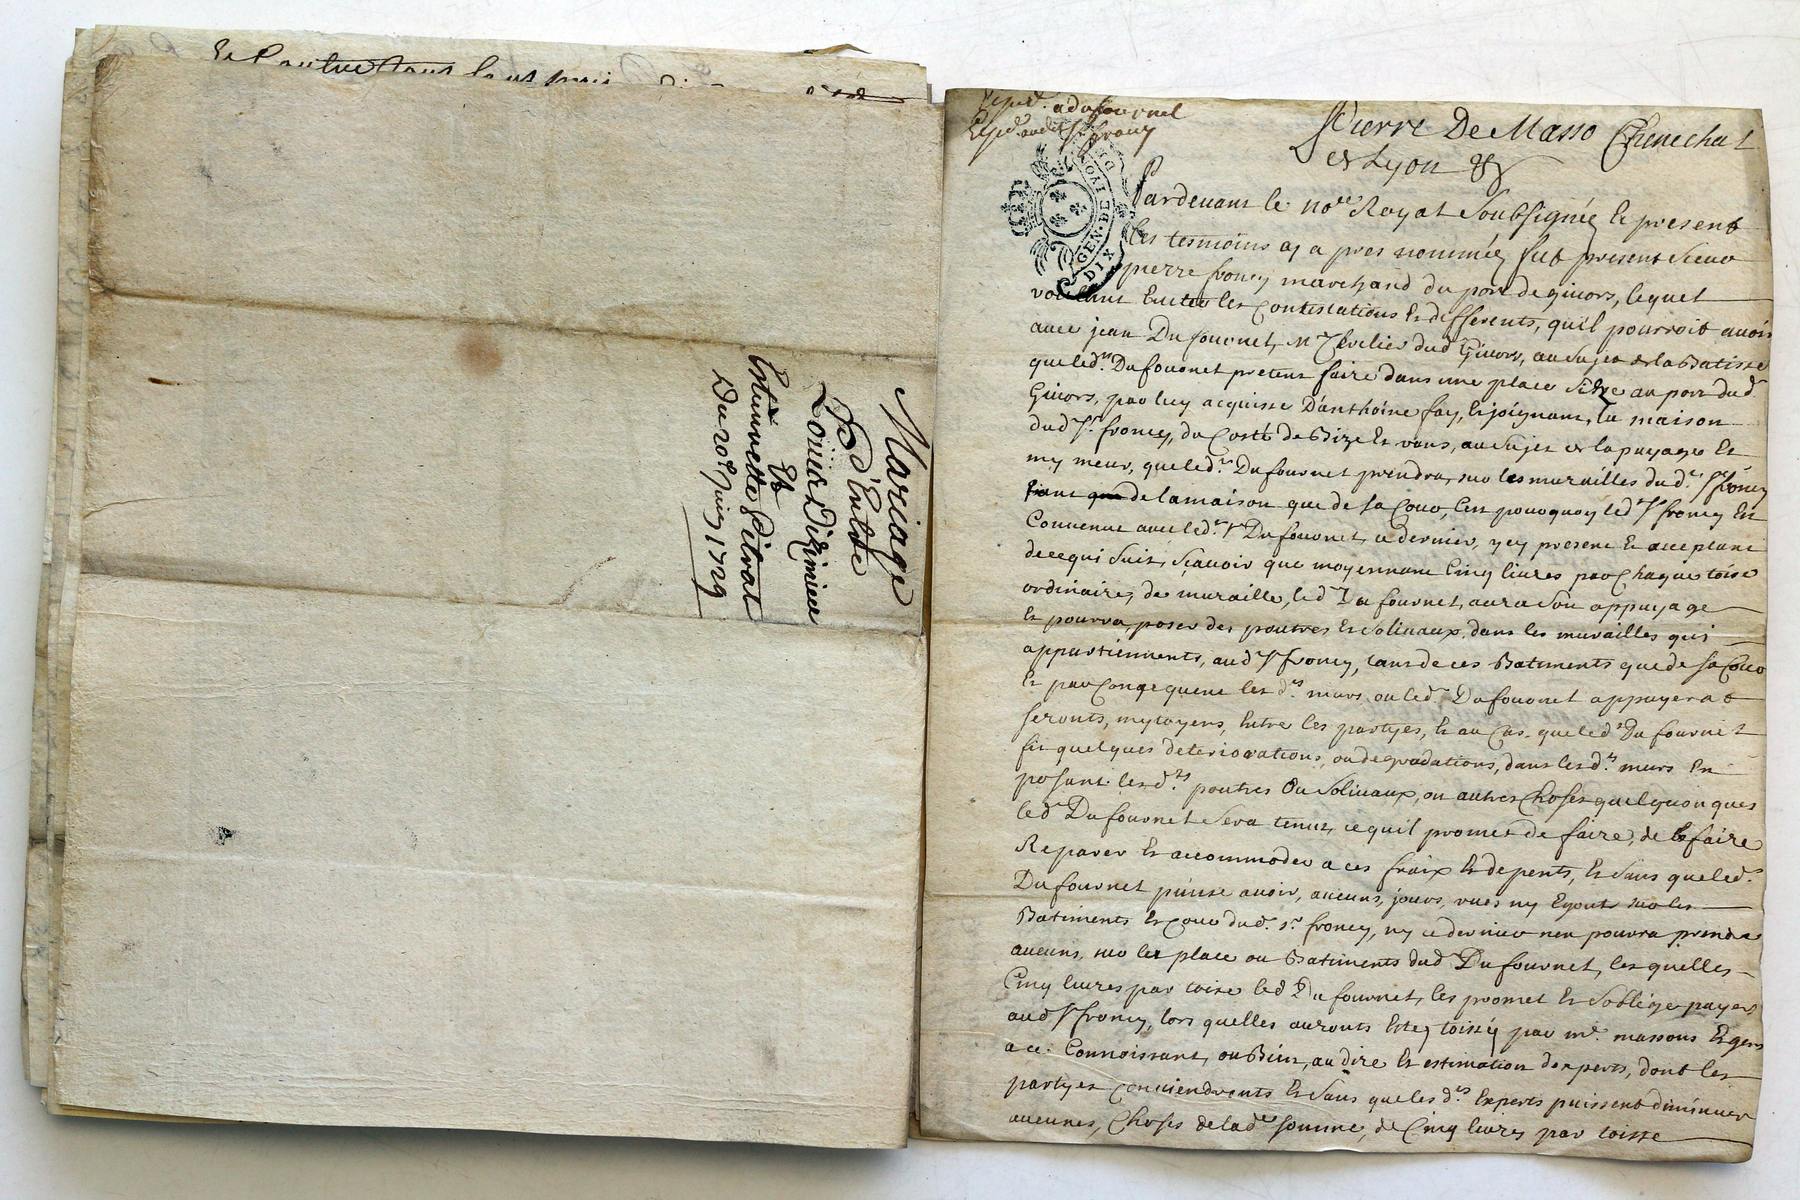 Mariage
D'Entre
Loüis Dizimieu
Et
Estiennette Pitrat
Du 20e. Juin 1729
Exped. a dufournel
Exped. audit Sr froncy
Pierre De Masso Chenechal
de Lyon &
GEN. DE LYON
DIX
Pardeuant le nore Royal Soubsignée le present
les tesmoins cy a pres nommés fut present Sieur
pierre froncy marchand du port de giuors, lequel
voullant Euiter les Contestations Et differents, quil pourroit auoir
auec jean Du fournel, Mr dud Giuors, au Sujet de la Batisse
queledt. Dufournel pretent faire dans une place Size au port dud
Giuors, par luy acquisse D'anthoine fay, Et joignant, la maison
dud Sr. froncy, du Costé de Bize Et vans, au Sujet de lapuyage Et
my meur, queledt. Dufournel prendra, sur les murailles dudt. Sr froncy
tant que de lamaison que de sa Cour, Cest pourquoy led Sr froncy Est
Conuenue auec ledt. Sr Dufournel, ce dernier, ycy present Et acceptant
de cequi Suit, Sçauoir que moyennant Cinq liures par Chaque toise
ordinaire, de muraille, led Du fournel, aura Son appuyage
Et pourra, poser des poutres Et Soliuaux, dans les murailles qui
appartiennents, aud Sr froncy, tant de ces Batiments que de sa Cour
Et par Consequent les dts murs, ou ledt Dufournel appuyerat
seronts, mytoyens, Entre les partyes, Et au Cas, queledt Du fournel
fit quelques deteriorations, ou degradations, dans lesdts. murs En
posant lesdts. poutres Ou Soliuaux, ou autres Choses quelquonques
ledt Dufournel Sera tenut, ce quil promet de faire, de les faire
Reparer Et accommoder a ces fraix Et depents, Et Sans queledt.
Dufournel puisse auoir, aucuns, jours, vues ny Egout sur les
Batiments Et Cour dudt. sr. froncy, ny ce dernier nen pourra prendre
aucuns, sur les place ou Batiments dud Dufournel, les quelles
Cinq liures par toise led Dufournel, les promet Et Soblige payer
aud Sr froncy, lors quelles auronts Estes toisés par me. massons Et gens
a ce Connoissant, ou Bien, au dire Et estimation dexperts, dont les
partyes Conuiendronts Et Sans que les dts Experts puissent diminuer
aucunes, Choses de la dte somme, de Cinq liures par toisse